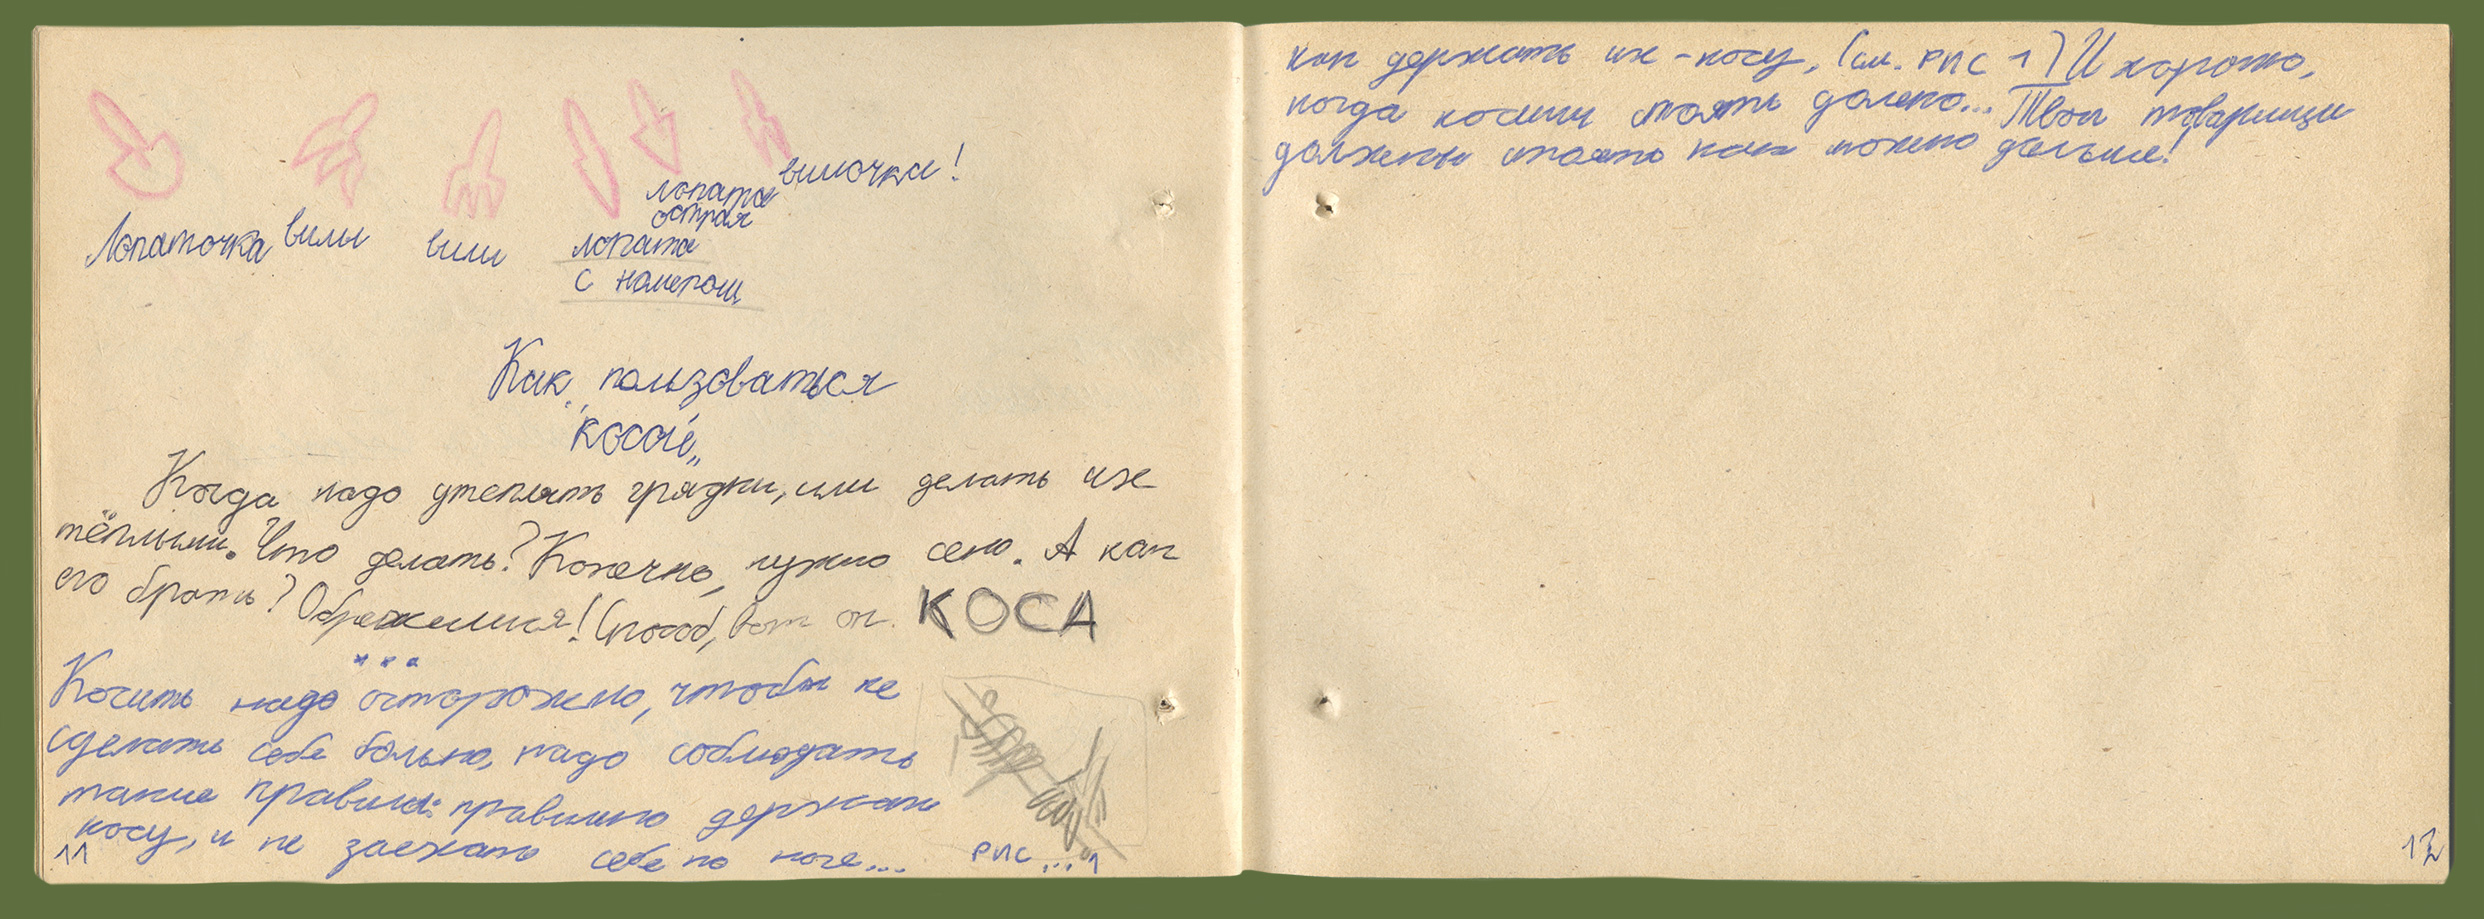 вилочка!
лопата
острая
Лопаточка вилы вилы лопата
с налепош
Как пользоваться
"косой"
Когда надо утеплять грядки, или делать их
тёплыми. Что делать? Конечно, нужно сено. А как
его брать? Обрежемся! Способ, вот он. КОСА
Косить надо осторожно, чтобы не
сделать себе больно, надо соблюдать
такие правила: правильно держать
косу, и не заехать себе по ноге...
рис...1
11
как держать их - косу, (см. рис 1) И хорошо,
когда косиш стоять далеко... Твои товарищи
должены стоять как можно дальше!
12